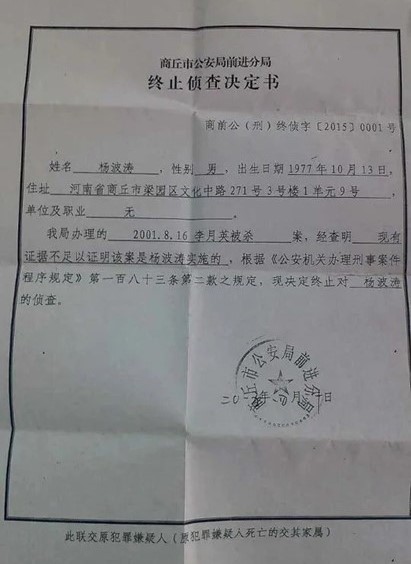 商丘市公安局前进分局
终止侦查决定书
商前公（刑）终侦字〔2015〕0001号
姓名 杨波涛 ，性别 男 ，出生日期 1977年10月13日，
住址 河南省商丘市梁园区文化中路271号3号楼1单元9号 ，
单位及职业 无 。
我局办理的 2001.8.16 李月英被杀 案，经查明 现有
证据不足以证明该案是杨波涛实施的 ，根据《公安机关办理刑事案件
程序规定》第一百八十三条第二款之规定，现决定终止对 杨波涛
的侦查。
商丘市公安局前进分局
二〇 年 月 日
此联交原犯罪嫌疑人（原犯罪嫌疑人死亡的交其家属）